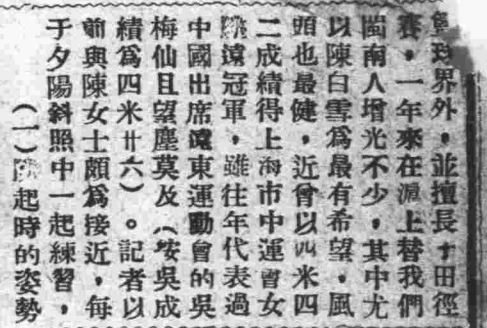 球界外，並擅長于田徑
賽，一年來在滬上替我們
閩南人增光不少，其中尤
以陳白雪爲最有希望，風
頭也最健，近曾以四米四
二成績得上海市中運會女
跳遠冠軍，雖往年代表過
中國出席遠東運動會的吳
梅仙且望塵莫及（按吳成
績爲四米廿六）。記者以
前與陳女士頗爲接近，每
于夕陽斜照中一起練習，
（一）跳起時的姿勢